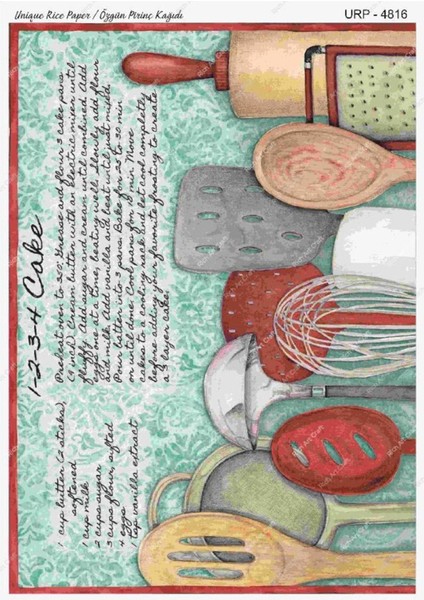 Unique Rice Paper / Özgün Pirinç Kağıdı
URP - 4816
1-2-3-4 Cake
1 cup butter (2 sticks),
softened
1 cup milk
2 cups sugar
3 cups flour, sifted
4 eggs
1 tsp vanilla extract
Preheat oven to 350. Grease and flour 3 cake pans
(9 inch). Cream butter with an electric mixer until
fluffy. Add sugar and cream until combined. Add
eggs one at a time, beating well. Slowly add flour
and milk. Add vanilla and beat until just mixed.
Pour batter into 3 pans. Bake for 25 to 30 min
or until done. Cool pans for 10 min. Move
cakes to a cooling rack and let cool completely
before adding your favorite frosting to create
a 3 layer cake!